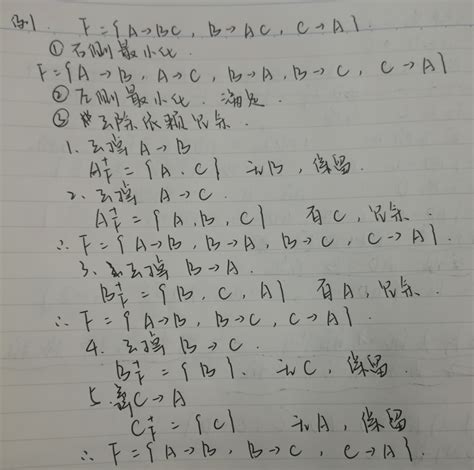 例1. F={A→BC, B→AC, C→A}
① 右侧最小化.
F={A→B, A→C, B→A, B→C, C→A}
② 左侧最小化. 满足.
③ 去除依赖冗余.
1. 去掉 A→B
A⁺F = {A, C} 无B, 保留.
2. 去掉 A→C.
A⁺F = {A, B, C} 有C, 冗余.
∴ F={A→B, B→A, B→C, C→A}.
3. 去掉 B→A.
B⁺F = {B, C, A} 有A, 冗余.
∴ F={A→B, B→C, C→A}.
4. 去掉 B→C.
B⁺F = {B}. 无C, 保留.
5. C→A
C⁺F = {C} 无A, 保留
∴ F={A→B, B→C, C→A}